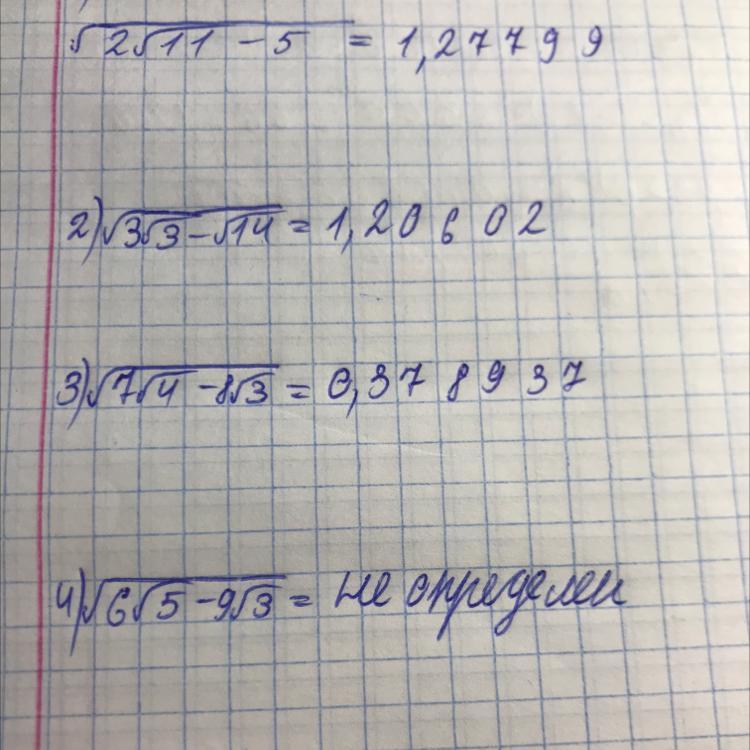 √(2√11 - 5) = 1,27799
2) √(3√3 - √14) = 1,20602
3) √(7√4 - 8√3) = 0,378937
4) √(6√5 - 9√3) = не определен